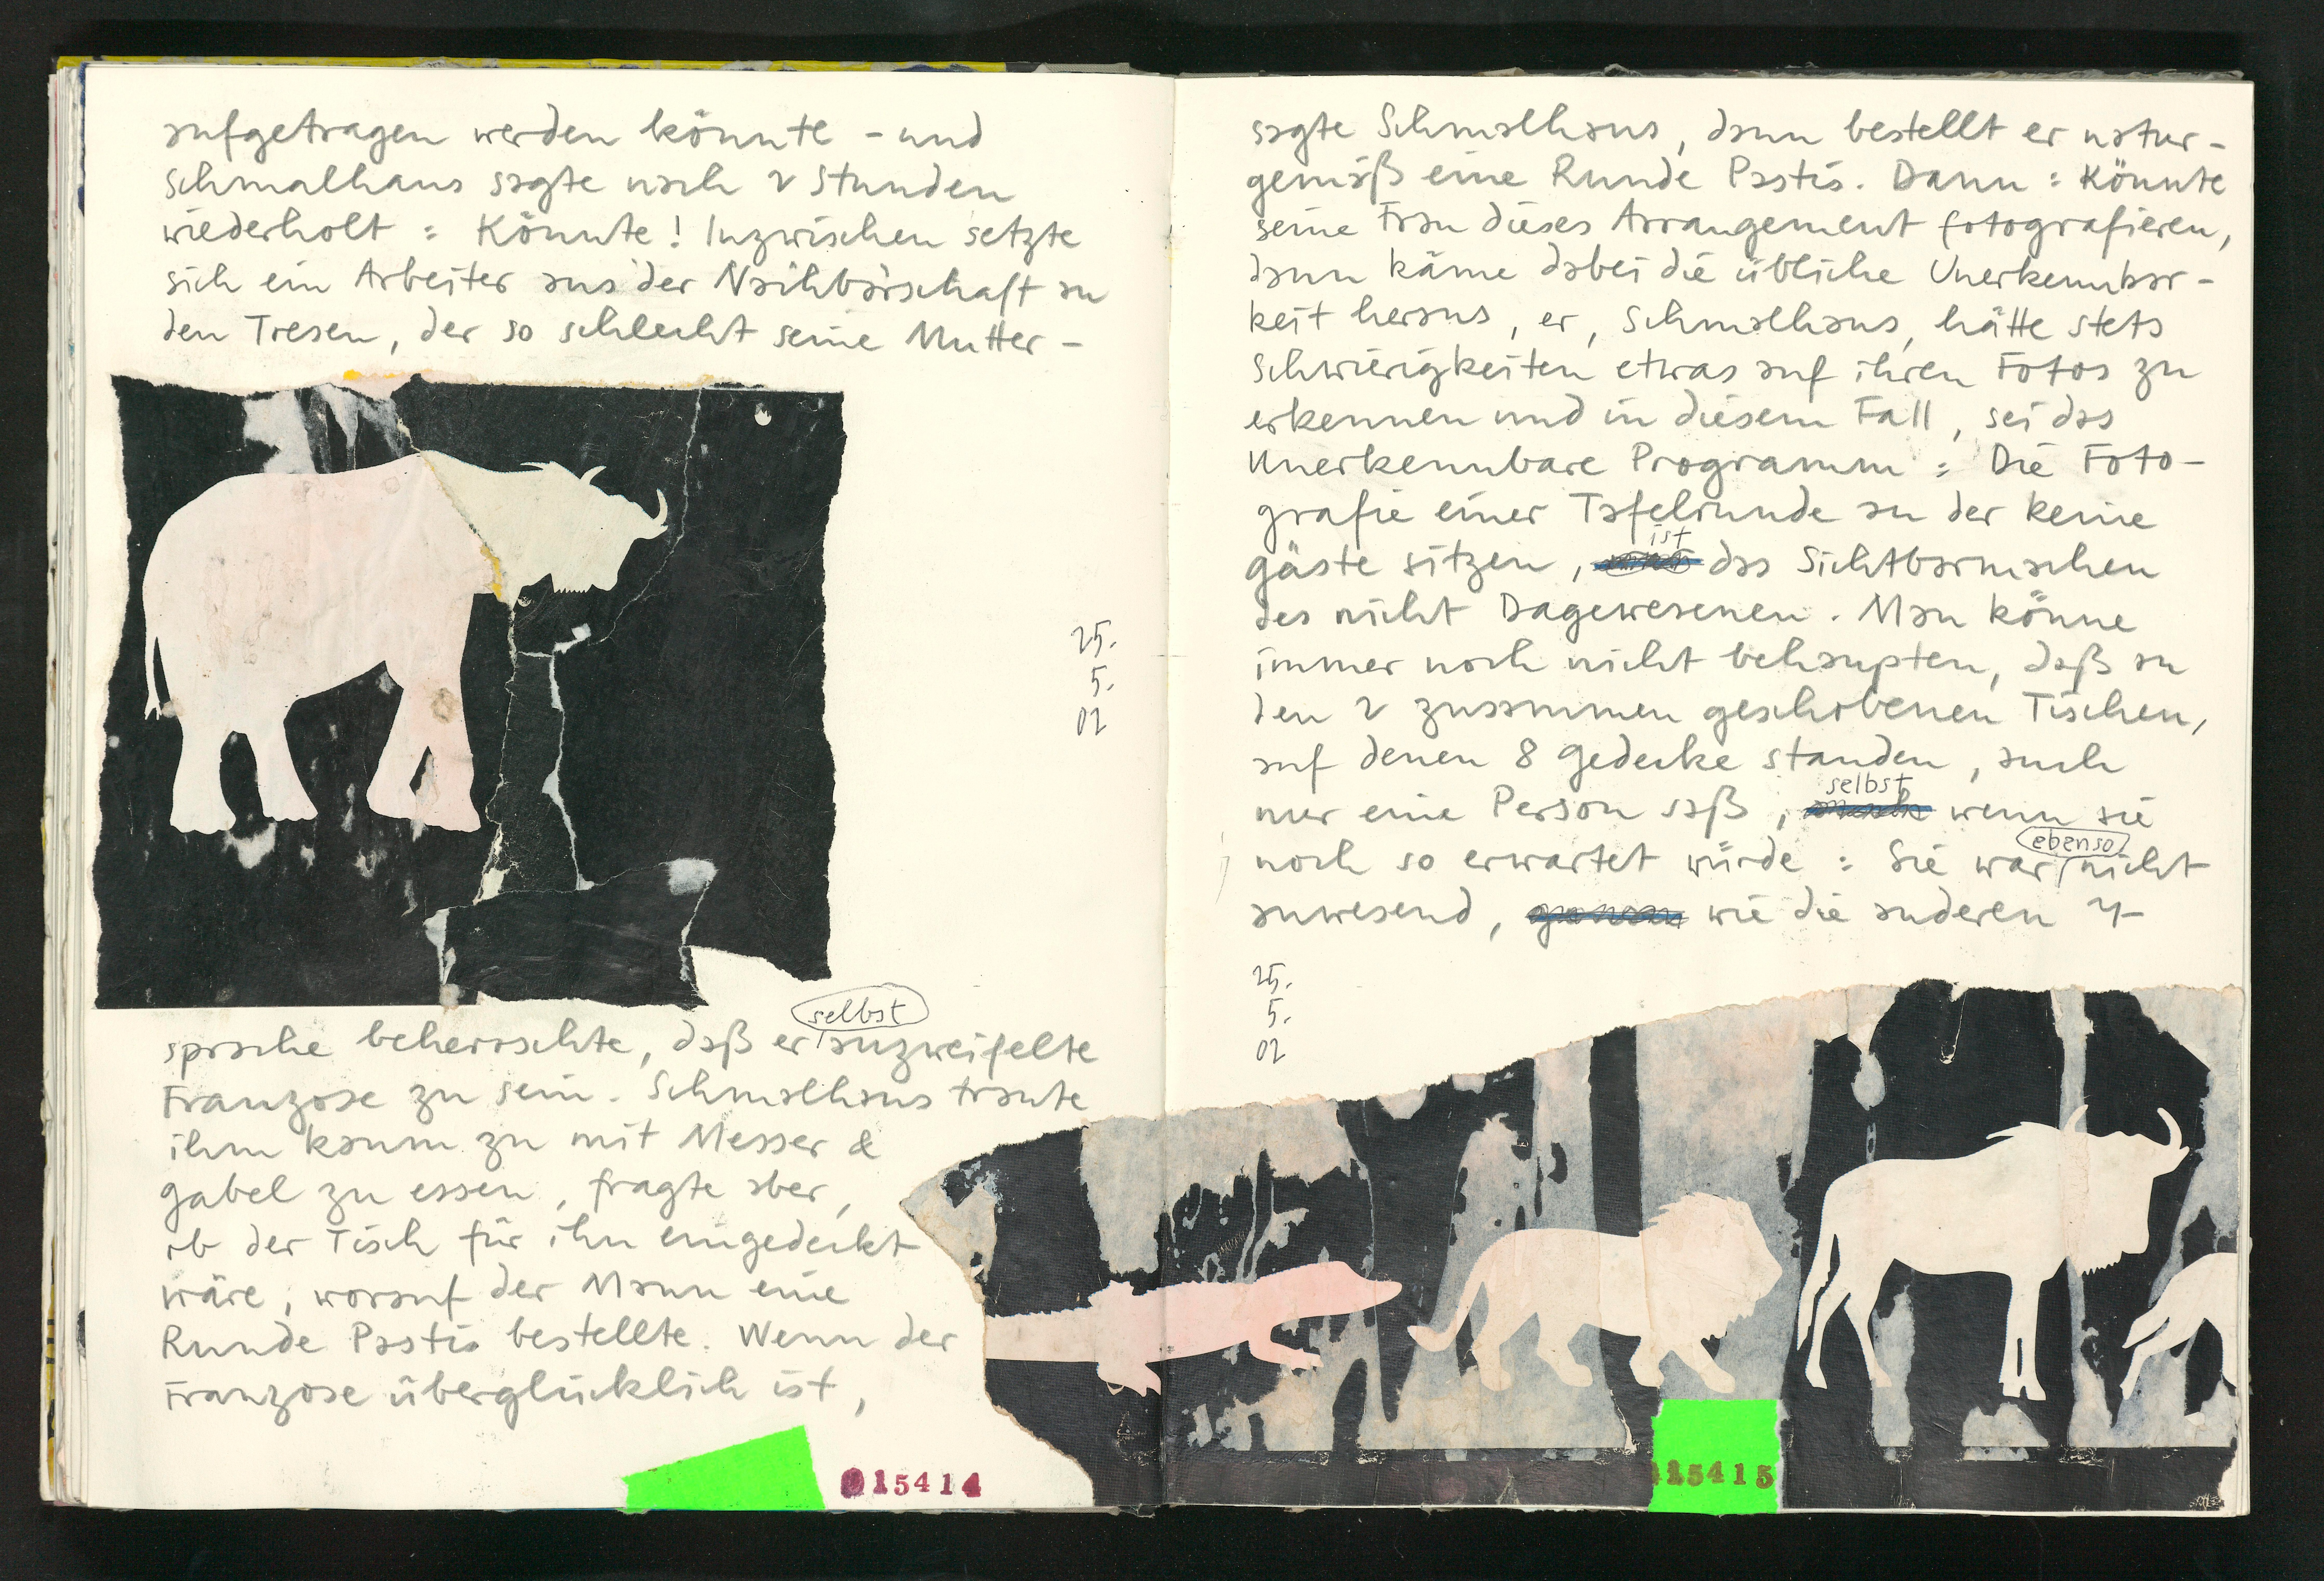 aufgetragen werden könnte - und
Schmalhaus sagte nach 2 Stunden
wiederholt : Könnte ! Inzwischen setzte
sich ein Arbeiter aus der Nachbarschaft an
den Tresen, der so schlecht seine Mutter-
25.
5.
02
selbst
sprache beherrschte, daß er anzweifelte
Franzose zu sein. Schmalhaus traute
ihm kaum zu mit Messer &
Gabel zu essen, fragte aber,
ob der Tisch für ihn eingedeckt
wäre, worauf der Mann eine
Runde Pastis bestellte. Wenn der
Franzose überglücklich ist,
015414
sagte Schmalhaus, dann bestellt er natur-
gemäß eine Runde Pastis. Dann : Könnte
seine Frau dieses Arrangement fotografieren,
dann käme dabei die übliche Unerkennbar-
keit heraus, er, Schmalhaus, hätte stets
Schwierigkeiten etwas auf ihren Fotos zu
erkennen und in diesem Fall, sei das
Unerkennbare Programm : Die Foto-
grafie einer Tafelrunde an der keine
ist
Gäste sitzen, das Sichtbarmachen
des nicht Dagewesenen. Man könne
immer noch nicht behaupten, daß an
den 2 zusammen geschobenen Tischen,
auf denen 8 Gedecke standen, auch
selbst
nur eine Person saß, wenn sie
ebenso
noch so erwartet würde : Sie war nicht
anwesend, wie die anderen 7-
25.
5.
02
15415